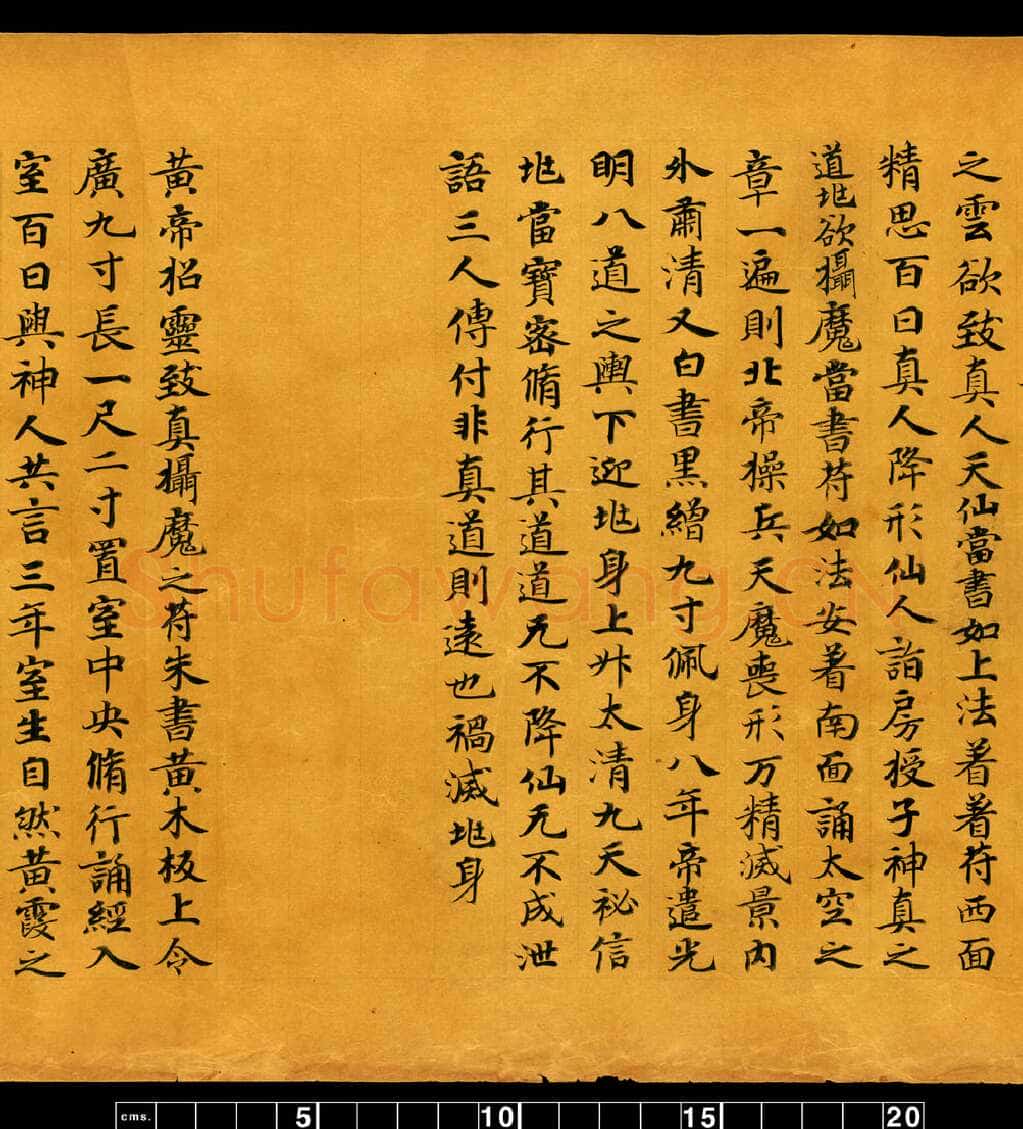 之雲欲致真人天仙當書如上法着着苻西面
精思百日真人降形仙人詣房授子神真之
道兆欲攝魔當書苻如法安着南面誦太空之
章一遍則北帝操兵天魔喪形万精滅景內
外肅清又白書黑繒九寸佩身八年帝遣光
明八道之輿下迎兆身上升太清九天祕信
兆當寶密脩行其道道无不降仙无不成泄
語三人傳付非真道則遠也禍滅兆身
黃帝招靈致真攝魔之苻朱書黃木板上令
廣九寸長一尺二寸置室中央脩行誦經入
室百日與神人共言三年室生自然黃霞之
Shufawang.CN
cms. 5 10 15 20